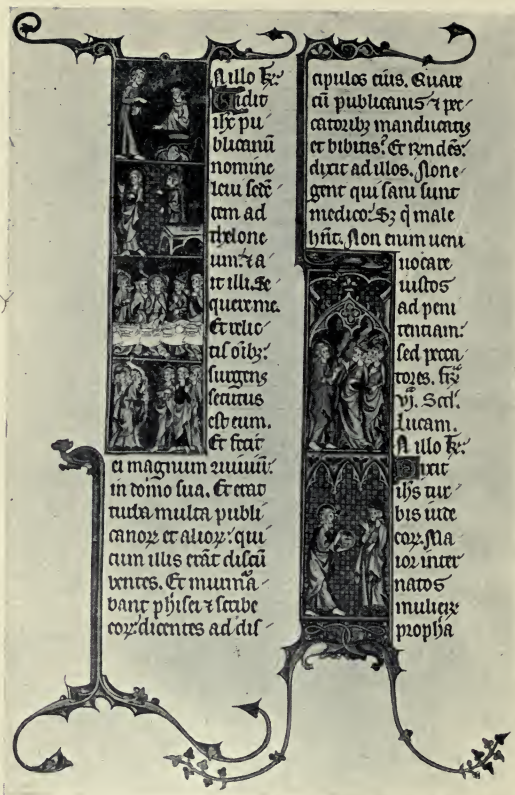 N illo t̄r̄:
Vidit
ihc pu
blicanū
nomine
leui sedē
tem ad
thelone
um: ⁊ a
it illi. Se
quere me.
Et relic
tis oībꝫ:
surgens
secutus
est eum.
Et fecit
ei magnum ꝯuiuiū:
in domo sua. Et erat
turba multa publi
canoꝝ et alioꝝ: qui
cum illis erāt discū
bentes. Et murmᵃa
bant phīsei ⁊ scribe
eoꝝ: dicentes ad dis
cipulos eius. Quare
cū publicanis ⁊ pec
catoribꝫ manducatis
et bibitis? Et rn̄dēs:
dixit ad illos. Non e
gent qui sani sunt
medico: Sꝫ q̇ male
hn̄t. Non enim ueni
uocare
iustos
ad peni
tentiam:
sed pecca
tores. fr̄ᵃ
vj. Scd̄.
lucam.
N illo t̄r̄:
Dixit
ihs tur
bis iude
eoꝝ. Ma
ior inter
natos
mulieꝝ
propha